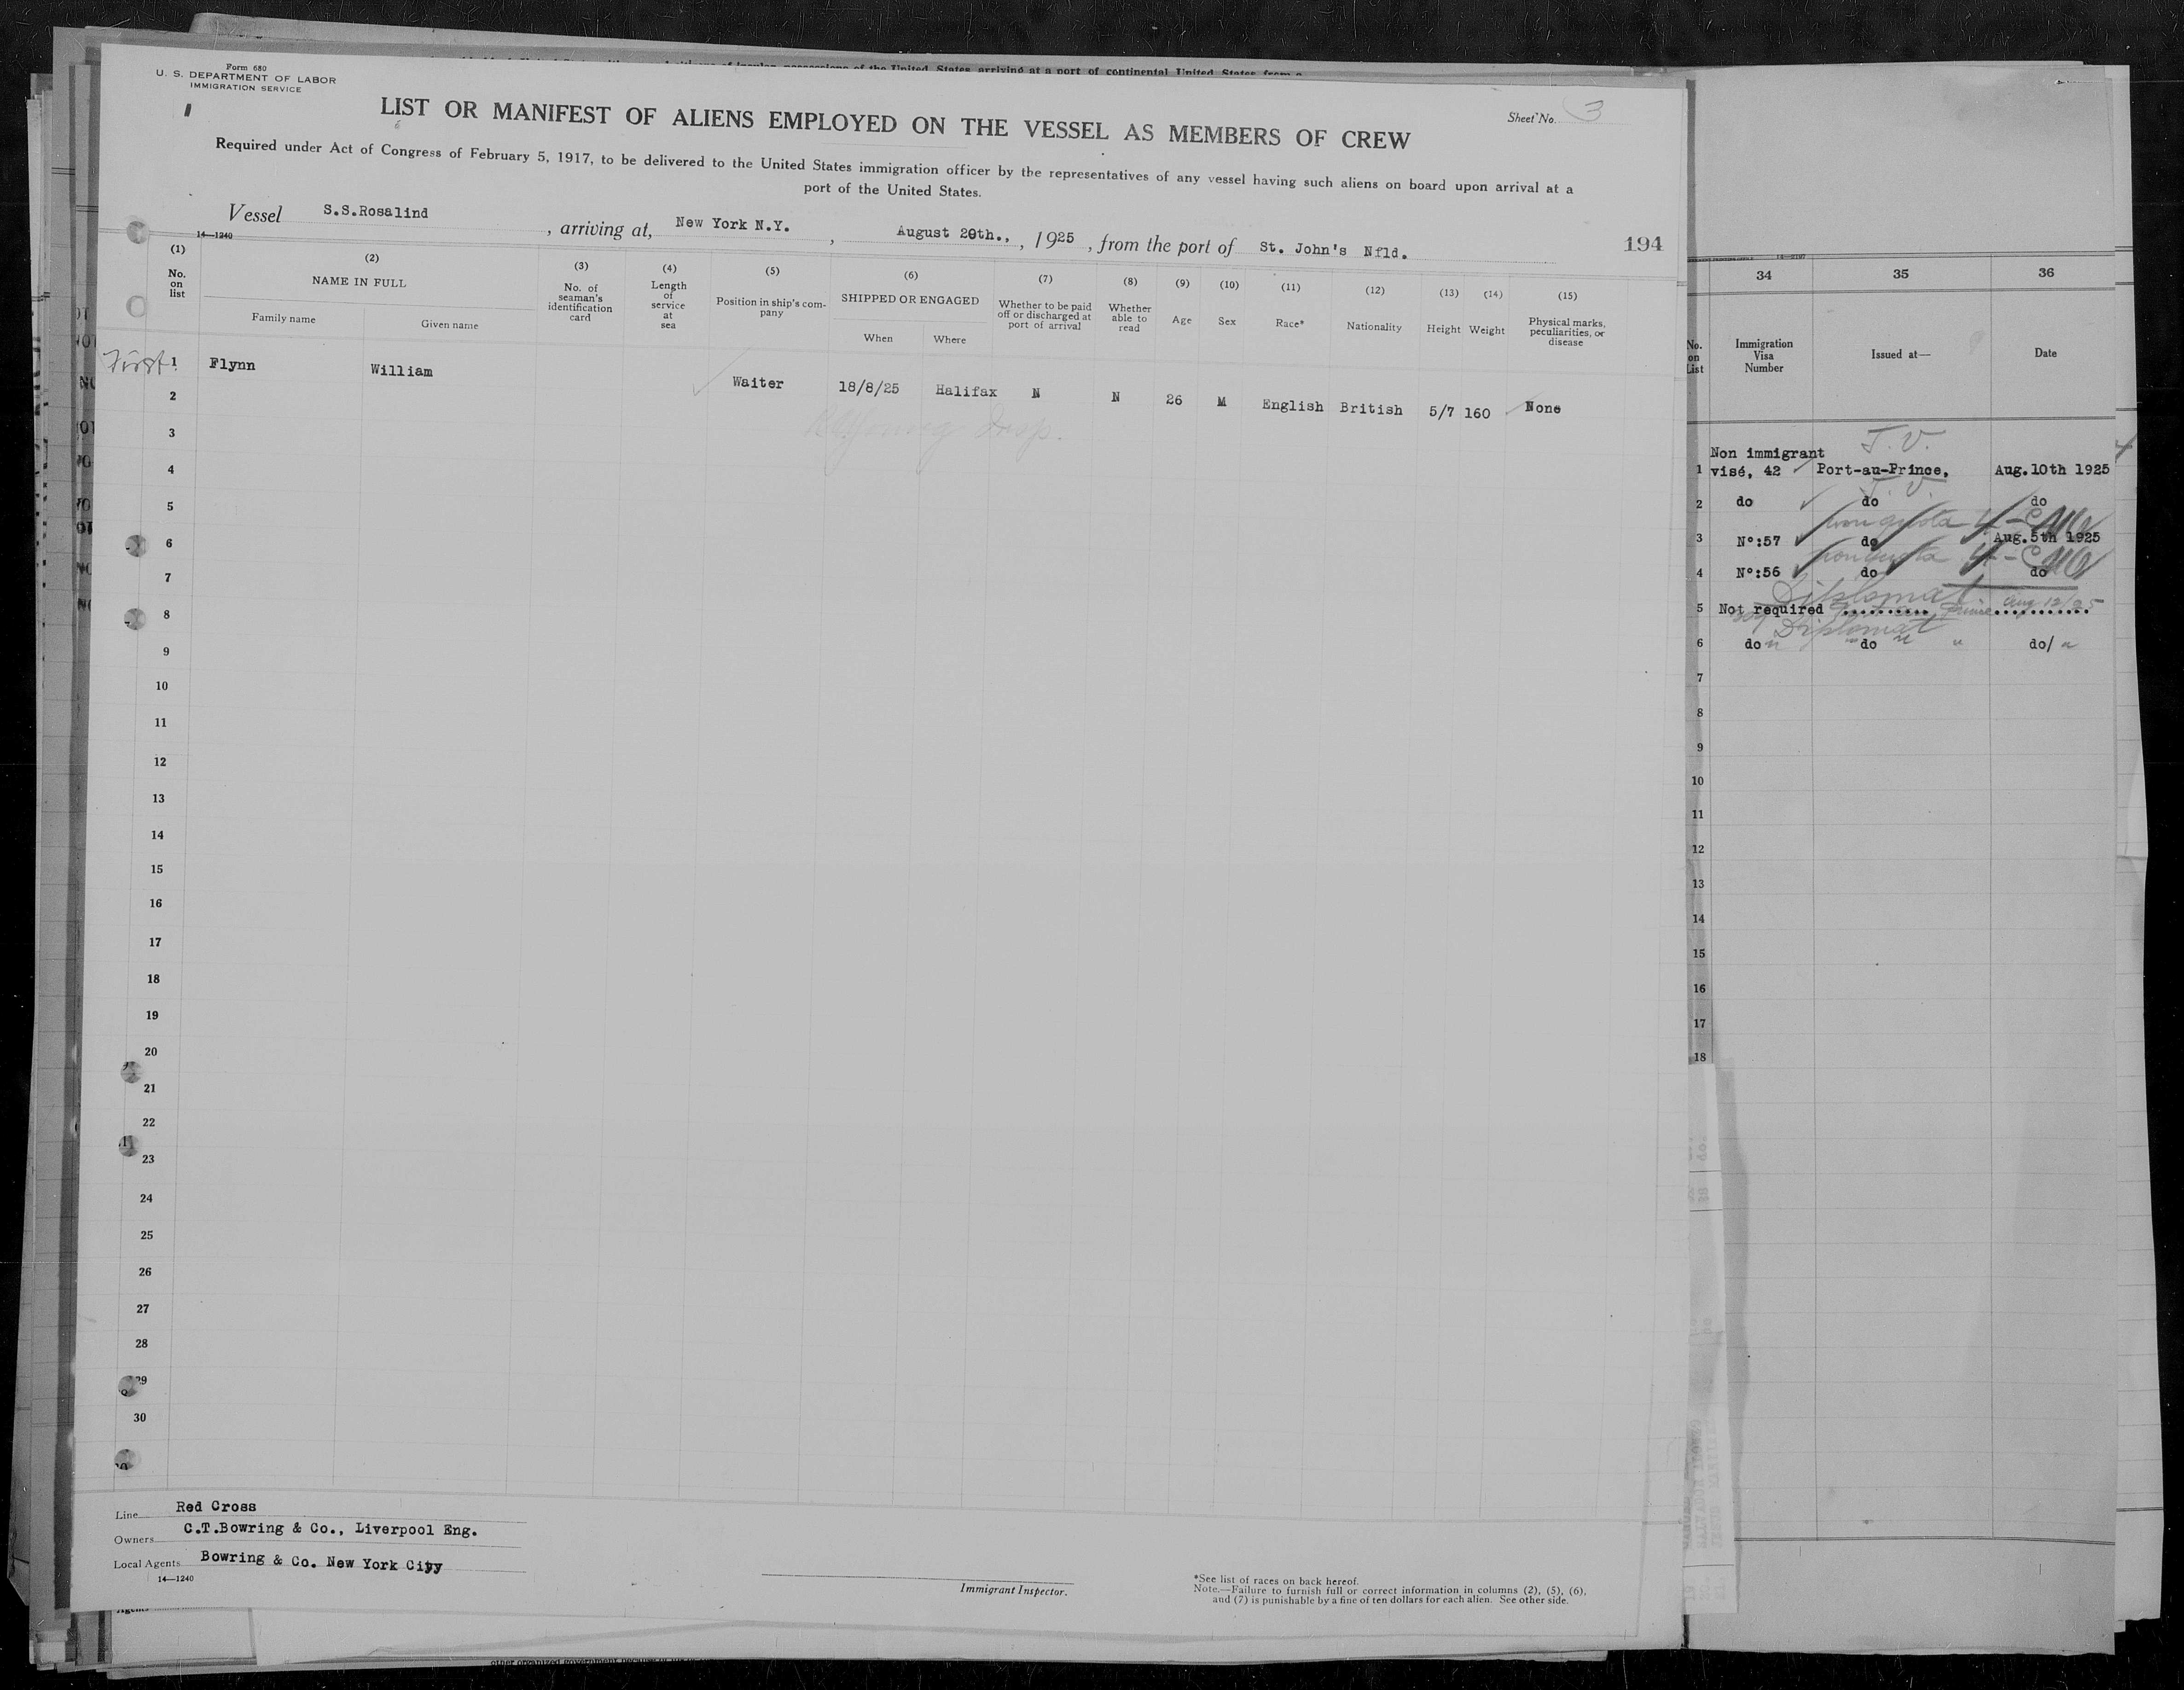 Form 680
U. S. DEPARTMENT OF LABOR
IMMIGRATION SERVICE
Sheet No. 3
LIST OR MANIFEST OF ALIENS EMPLOYED ON THE VESSEL AS MEMBERS OF CREW
Required under Act of Congress of February 5, 1917, to be delivered to the United States immigration officer by the representatives of any vessel having such aliens on board upon arrival at a
port of the United States.
Vessel S.S.Rosalind, arriving at, New York N.Y., August 20th., , 1925, from the port of St. John's Nfld.
194
14—1240
(1) No. on list
(2) NAME IN FULL
Family name Given name
(3) No. of seaman's identification card
(4) Length of service at sea
(5) Position in ship's company
(6) SHIPPED OR ENGAGED
When Where
(7) Whether to be paid off or discharged at port of arrival
(8) Whether able to read
(9) Age
(10) Sex
(11) Race*
(12) Nationality
(13) Height
(14) Weight
(15) Physical marks, peculiarities, or disease
First 1 Flynn William Waiter 18/8/25 Halifax N N 26 M English British 5/7 160 None
2
3
4
5
6
7
8
9
10
11
12
13
14
15
16
17
18
19
20
21
22
23
24
25
26
27
28
29
30
Line Red Cross
Owners C.T.Bowring & Co., Liverpool Eng.
Local Agents Bowring & Co. New York City
14—1240
Immigrant Inspector.
*See list of races on back hereof.
Note.—Failure to furnish full or correct information in columns (2), (5), (6),
and (7) is punishable by a fine of ten dollars for each alien. See other side.
34 35 36
No. on List
Immigration Visa Number
Issued at—
Date
T. V.
Non immigrant
1 visé, 42 Port-au-Prince, Aug.10th 1925
T. V.
2 do do do
3 Nº:57 do Aug.5th 1925
4 Nº:56 do do
Diplomat
5 Not required Prince Aug 12/25
Diplomat
6 do do do/
7
8
9
10
11
12
13
14
15
16
17
18